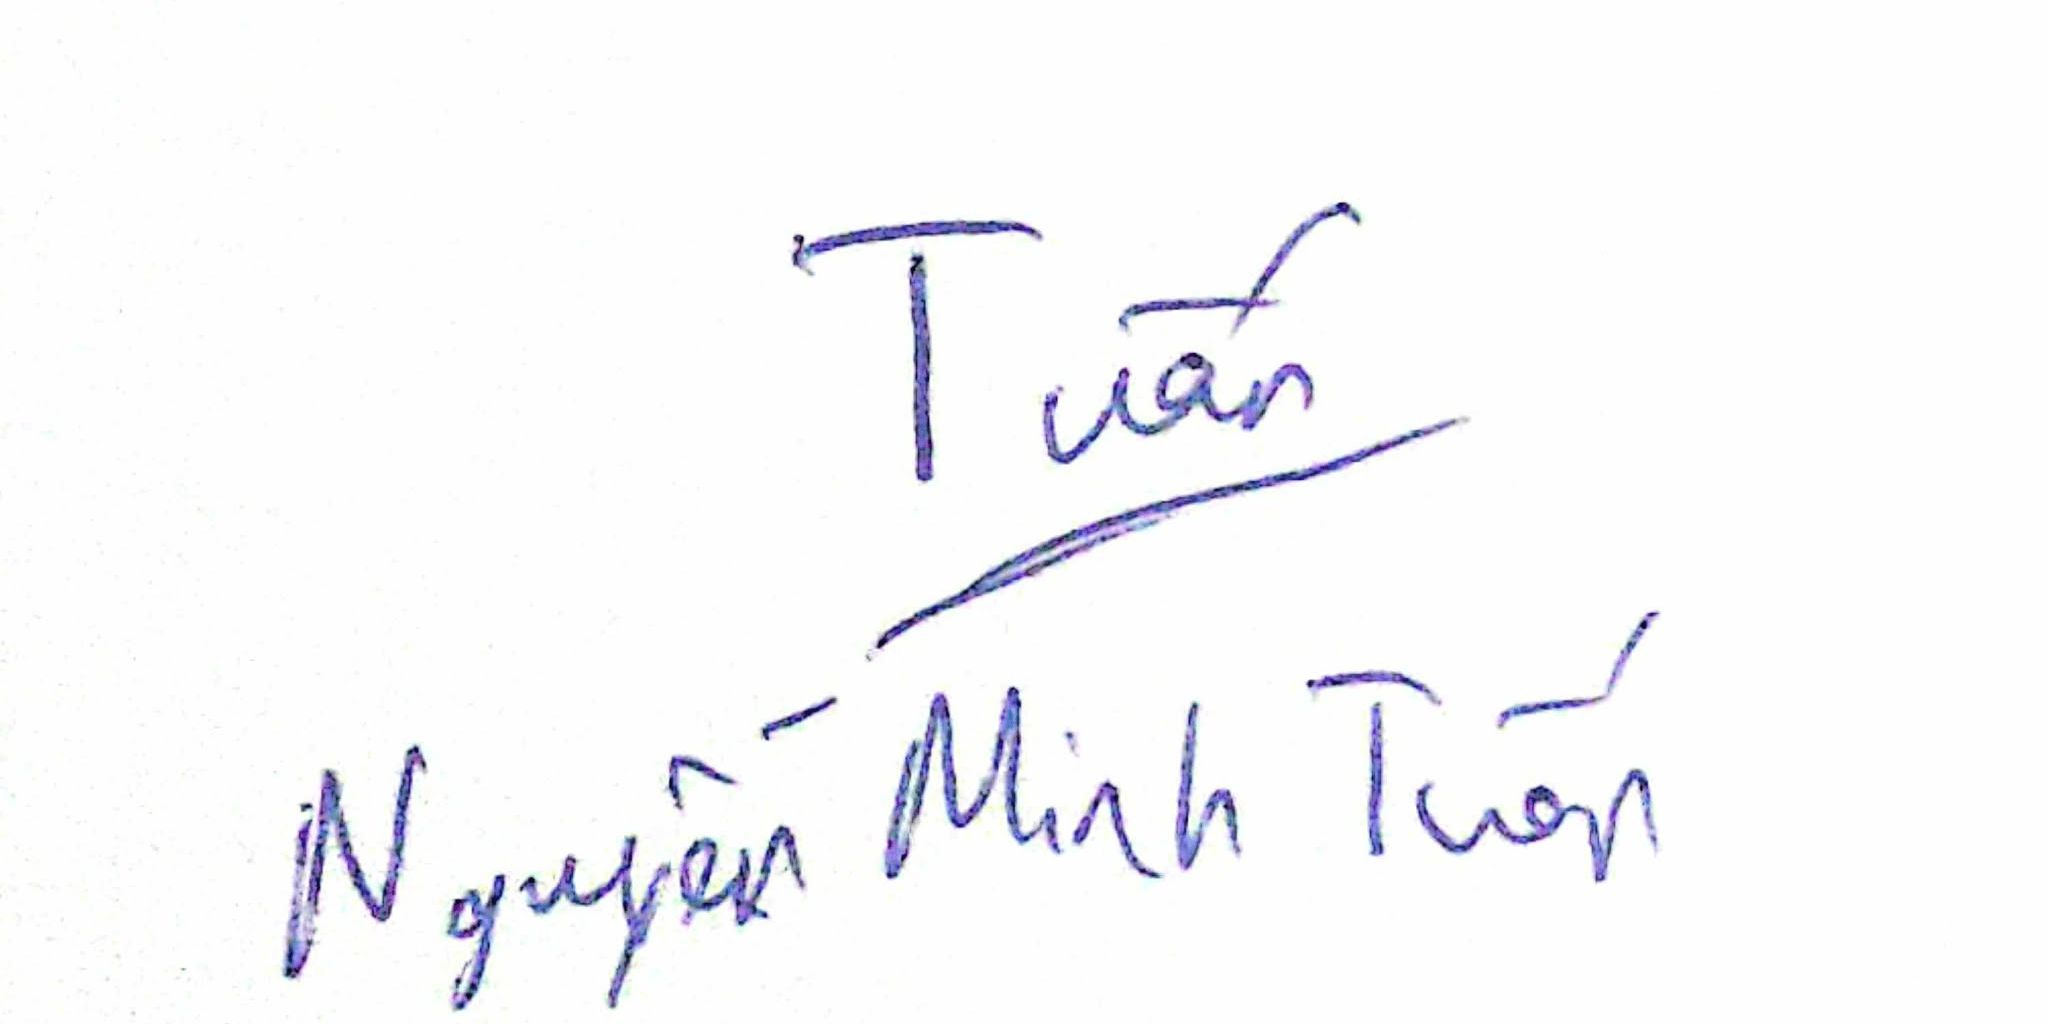 Tuấn
Nguyễn Minh Tuấn